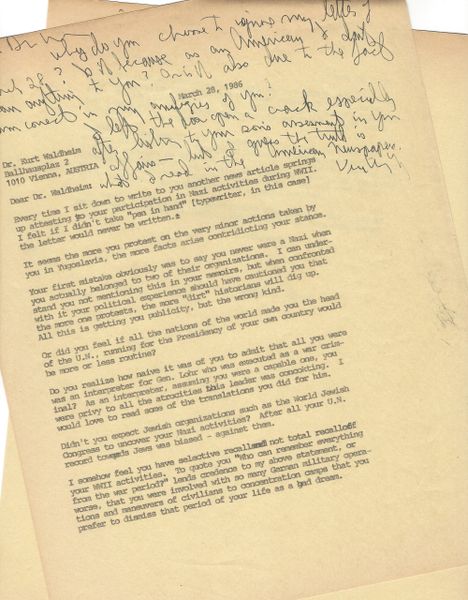 Dr. W
why do you choose to ignore my letter of
March 28? Is it because as an American I don't
mean anything to you? Or is it also due to the fact
I am correct in my analyses of you?
I left the door open a crack especially
after listening to your son's assessment in you
affair – but I guess the truth is
what I read in the American Newspaper.
March 28, 1986
Dr. Kurt Waldheim
Ballhausplatz 2
1010 Vienna, AUSTRIA
Dear Dr. Waldheim:
Every time I sit down to write to you another news article springs
up attesting to your participation in Nazi activities during WWII.
I felt if I didn't take "pen in hand" [typewriter, in this case]
the letter would never be written.
It seems the more you protest on the very minor actions taken by
you in Yugoslavia, the more facts arise contridicting your stance.
Your first mistake obviously was to say you never were a Nazi when
you actually belonged to two of their organizations. I can under-
stand you not mentioning this in your memoirs, but when confronted
with it your political experience should have cautioned you that
the more one protests, the more "dirt" historians will dig up.
All this is getting you publicity, but the wrong kind.
Or did you feel if all the nations of the world made you the head
of the U.N., running for the Presidency of your own country would
be more or less routine?
Do you realize how naive it was of you to admit that all you were
was an interpreter for Gen. Lohr who was executed as a war crim-
inal? As an interpreter, assuming you were a capable one, you
were privy to all the atrocities this leader was concockting. I
would love to read some of the translations you did for him.
Didn't you expect Jewish organizations such as the World Jewish
Congress to uncover your Nazi activities? After all your U.N.
record towards Jews was biased - against them.
I somehow feel you have selective recall and not total recall of
your WWII activities. To quote you "Who can remember everything
from the war period?" lends credence to my above statement, or
worse, that you were involved with so many German military opera-
tions and maneuvers of civilians to concentration camps that you
prefer to dismiss that period of your life as a bad dream.